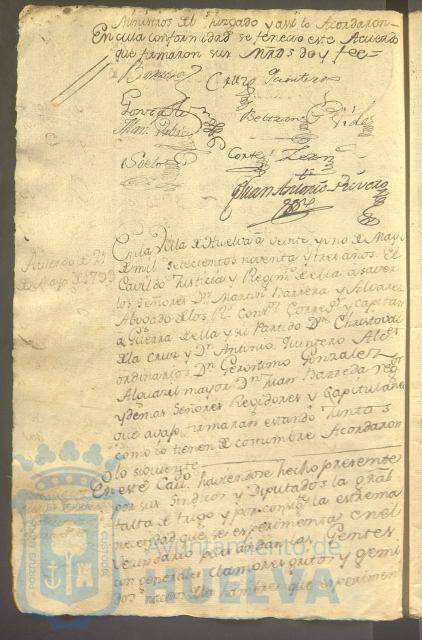 Ministros del Juzgado y assi lo Acordaron
En cuia conformidad se feneció este Acuerdo
que firmaron sus Mrds doy fee
Barrera
Cruz Quintero
Gonzalez
Bueno
Cortes
Juan Antonio
Acuerdo de 21
de Mayo de 1793
En la Villa de Huelva a veinte y uno de Mayo
de mil setecientos noventa y tres años. El
Cavildo Justicia y Regimto de ella a saver
los señores Dn Martin Barrera y Alvarez
Abogado de los Rs Consos Corregor y Capitan
a Guerra de ella y su Partido Dn Christoval
de la Cruz y Dn Antonio Quintero Alces
ordinarios Dn Geronimo Gonzalez
Alguacil mayor Dn Juan Barreda regor
y demas Señores Regidores y Capitulares
que avajo firmaran estando juntos
como lo tienen de costumbre Acordaron
lo siguiente
En este Cavo haviendose hecho presente
por sus Sindicos y Diputados la gral
falta de trigo y por consigte la extrema
necesidad que se experimenta en el
Vecindario las Gentes
con generales clamores gritos y gemi
dos la hambre que experimen
PORTUS
CUSTODIA
Ayuntamiento de
HUELVA